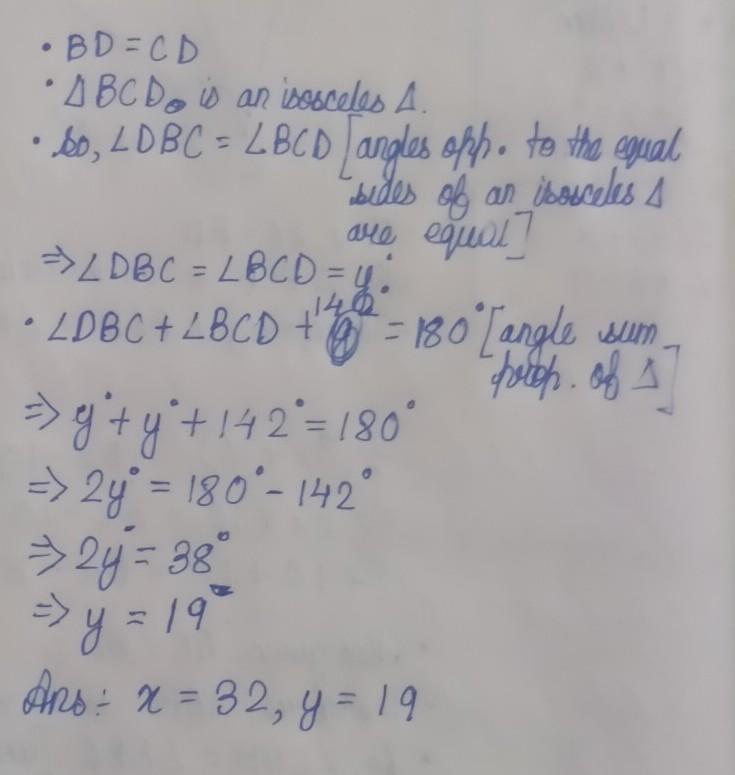 • BD = CD
• ΔBCD is an isosceles Δ.
• So, ∠DBC = ∠BCD [angles opp. to the equal
sides of an isosceles Δ
are equal]
⇒ ∠DBC = ∠BCD = y°
• ∠DBC + ∠BCD + 142° = 180° [angle sum
prop. of Δ]
⇒ y° + y° + 142° = 180°
⇒ 2y° = 180° - 142°
⇒ 2y° = 38°
⇒ y = 19
Ans:- x = 32, y = 19